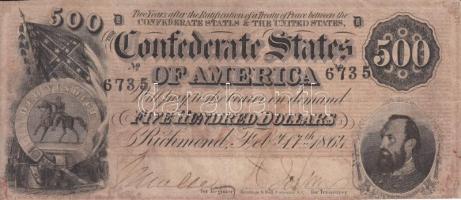 500 D Two Years after the Ratification of a Treaty of Peace between the D
CONFEDERATE STATES & THE UNITED STATES,
Confederate States 500
No 6735 No 6735
OF AMERICA
will pay to the bearer on demand
FIVE HUNDRED DOLLARS
Richmond, Feb 17th 1864
for Register for Treasurer
darabanth